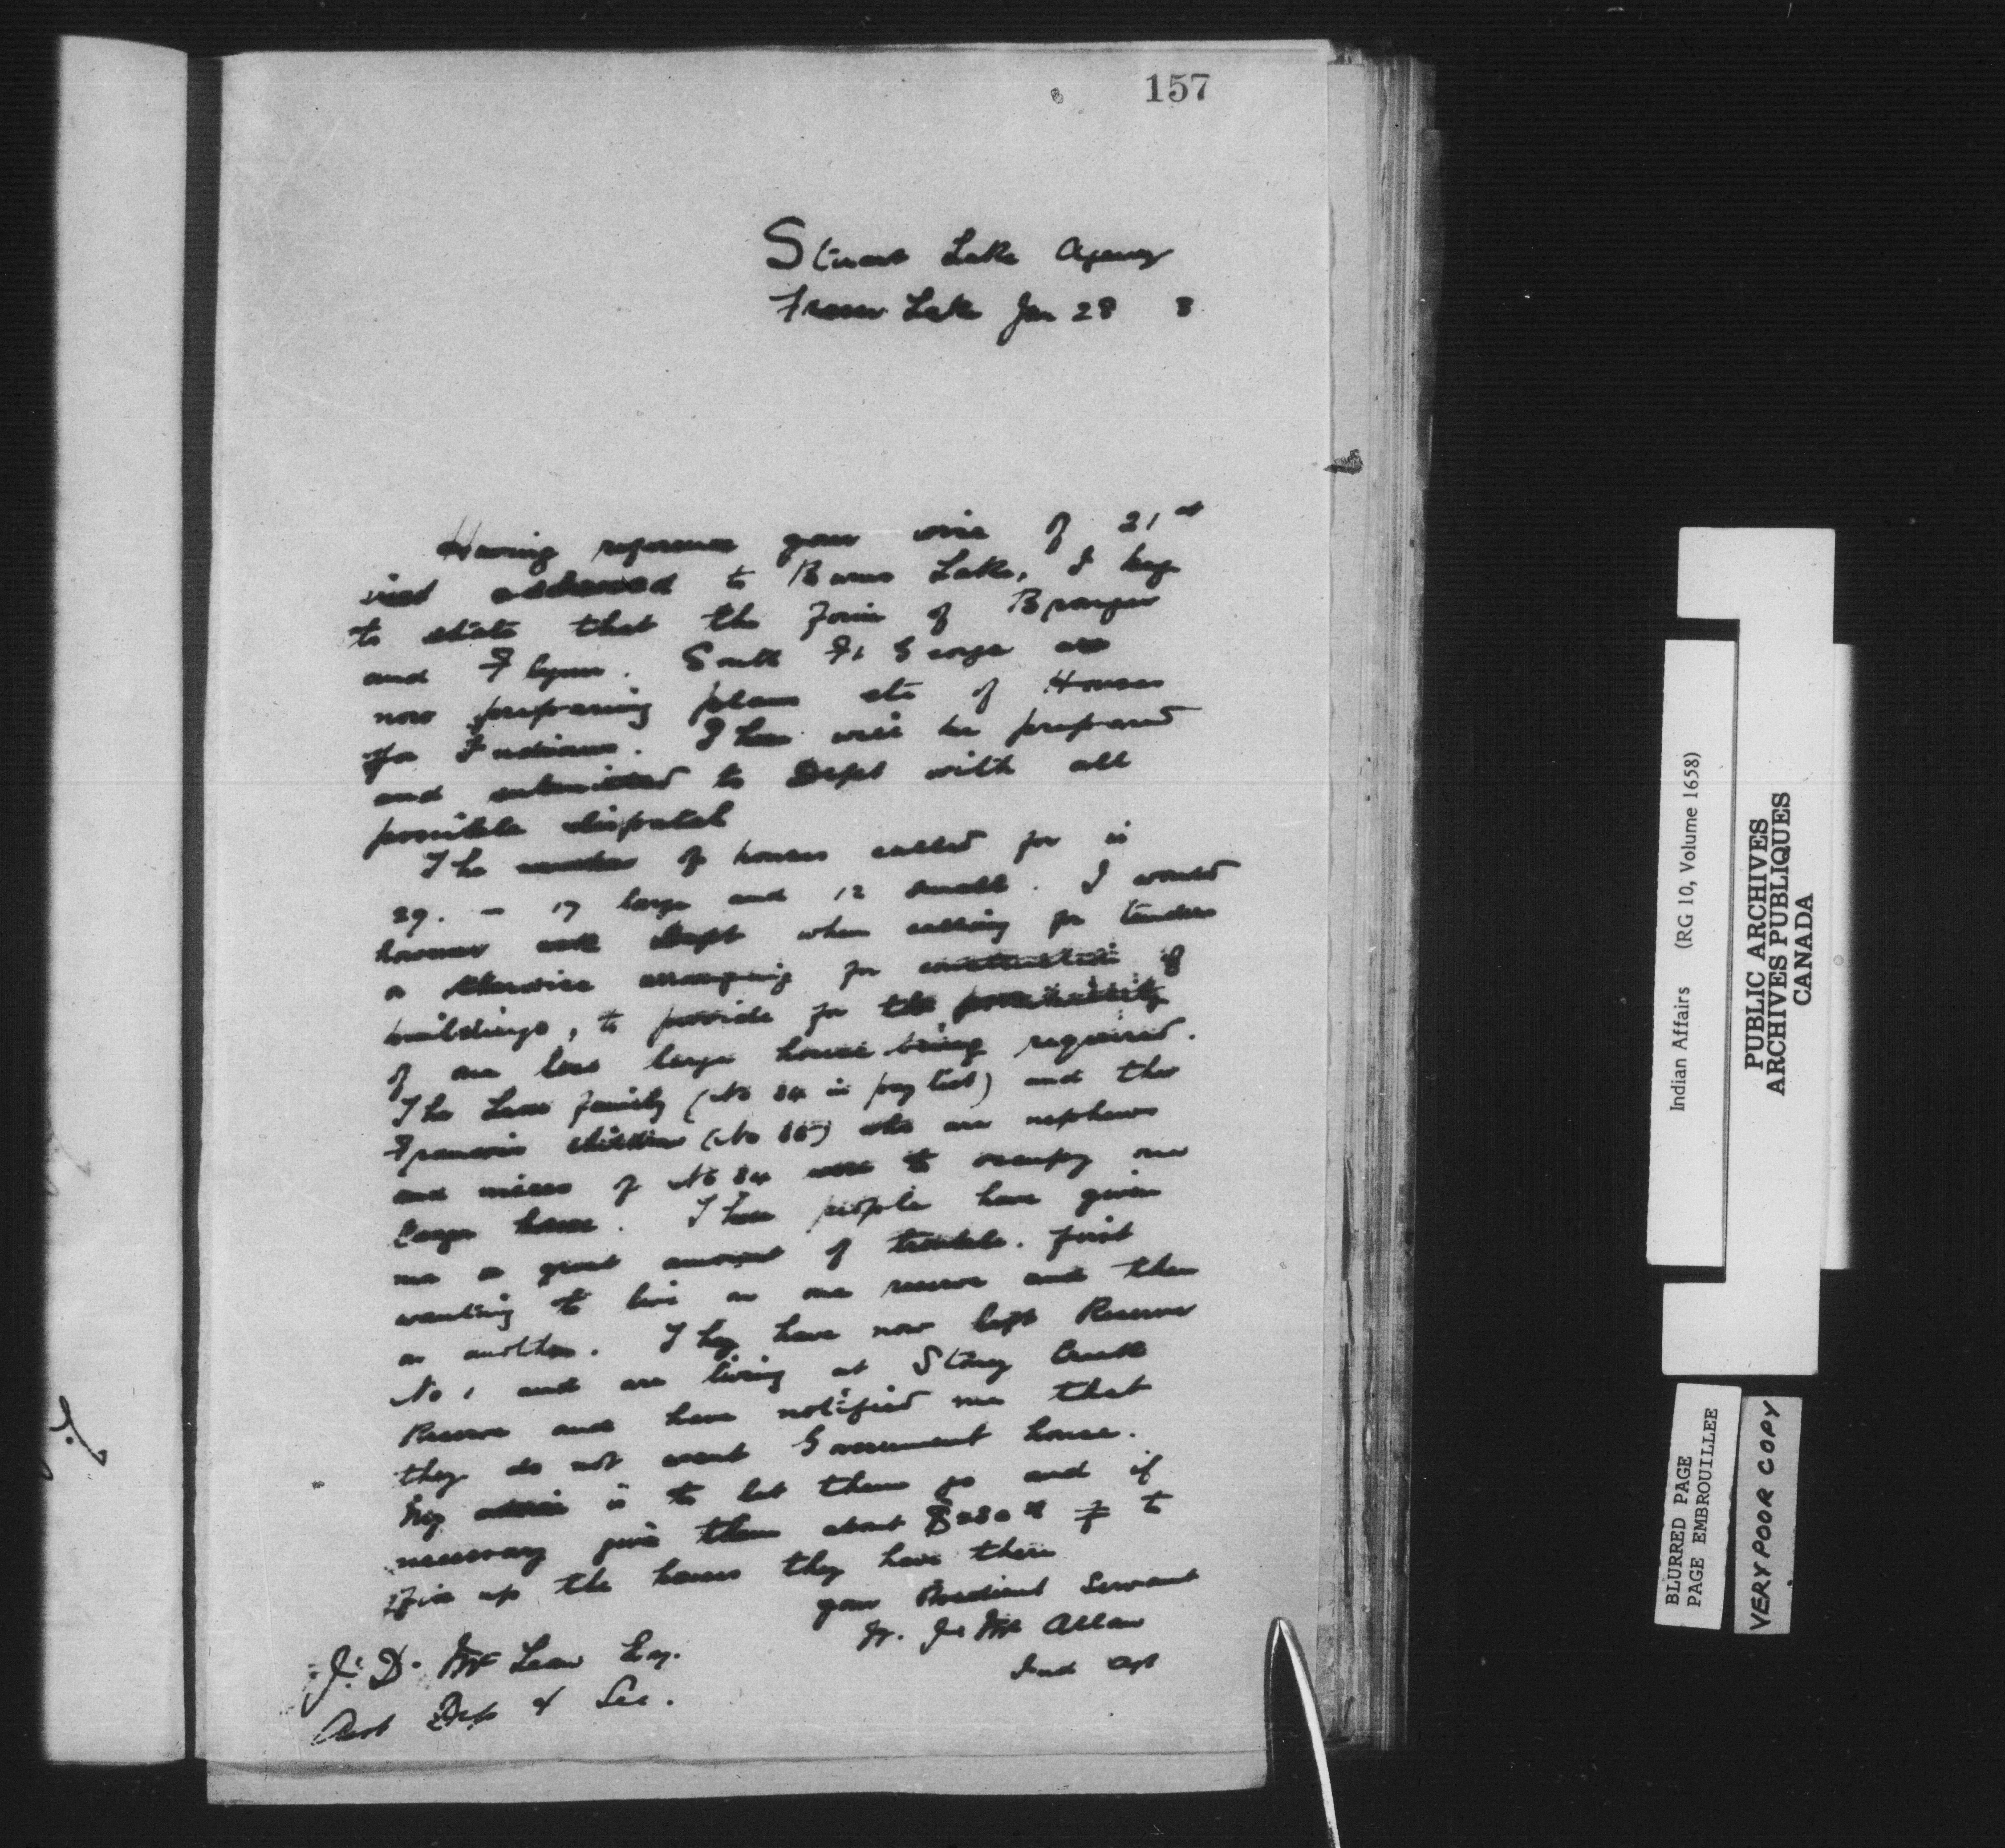 157
Stuart Lake Agency
Fraser Lake Jan 28 8
Having reference your wire of 21st
inst addressed to Burns Lake, I beg
to state that the Firm of
and Flynn. South Ft George are
now preparing plans etc of Houses
for Indians. These will be prepared
and submitted to Dept with all
possible dispatch
The number of houses called for is
29. – 17 large and 12 small. I would
however ask Dept when calling for tenders
or otherwise arranging for construction of
buildings, to provide for the possibility
of one less large house being required.
The family (No 84 in pay list) and the
Francois children (No 85) who are nephews
and nieces of No 84 were to occupy one
large house. These people have given
me a great amount of trouble. First
wanting to live on one reserve and then
on another. They have now left Reserve
No 1 and are living at Stony Creek
Reserve and have notified me that
they do not want Government house.
My advice is to let them go and if
necessary give them about to
fix up the houses they have there
your Obedient Servant
W. J. McAllan
Ind Agt
J. D. McLean Esq.
Asst Dep & Sec.
Indian Affairs (RG 10, Volume 1658)
PUBLIC ARCHIVES
ARCHIVES PUBLIQUES
CANADA
BLURRED PAGE
PAGE EMBROUILLEE
VERY POOR COPY